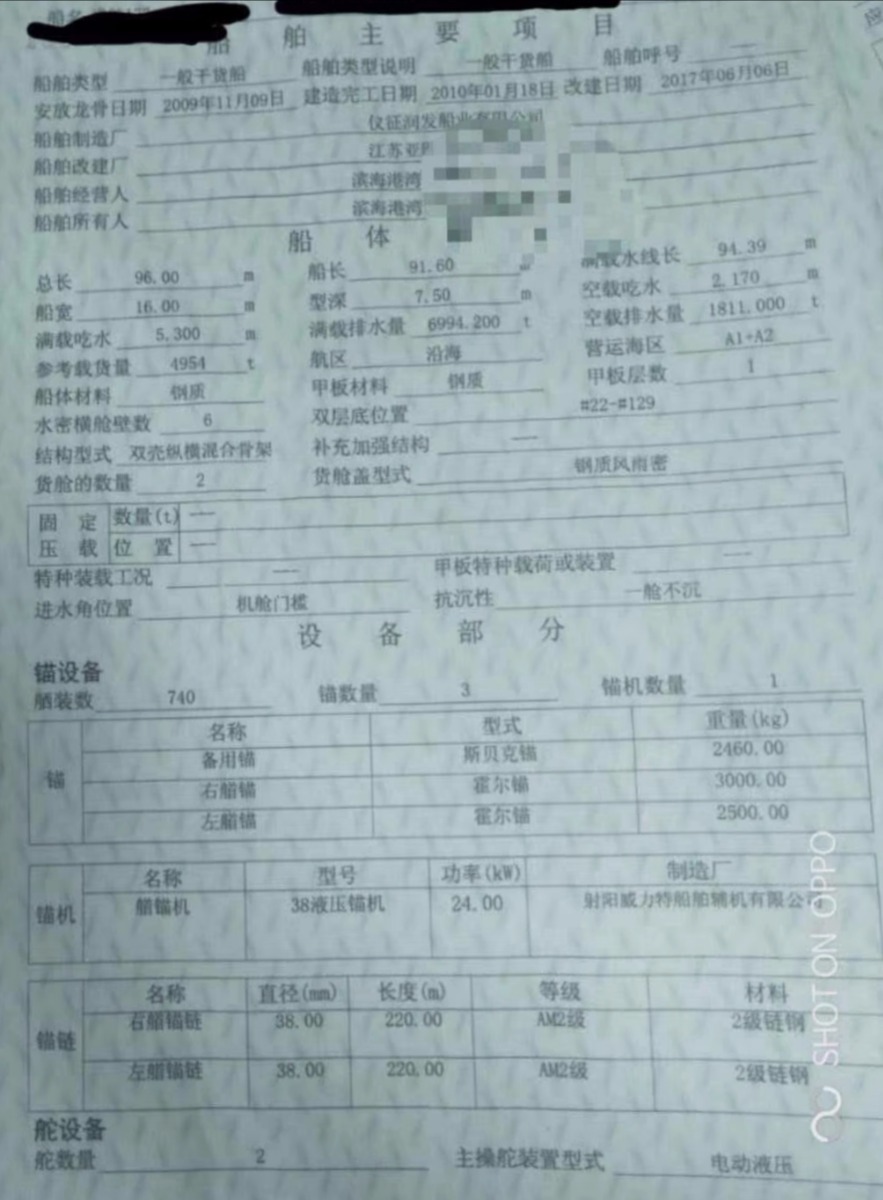 船舶主要项目
船舶类型 一般干货船 船舶类型说明 一般干货船 船舶呼号 ——
安放龙骨日期 2009年11月09日 建造完工日期 2010年01月18日 改建日期 2017年06月06日
船舶制造厂 仪征润发船业有限公司
船舶改建厂 江苏亚
船舶经营人 滨海港湾
船舶所有人 滨海港湾
船体
总长 96.00 m 船长 91.60 m 满载水线长 94.39 m
船宽 16.00 m 型深 7.50 m 空载吃水 2.170 m
满载吃水 5.300 m 满载排水量 6994.200 t 空载排水量 1811.000 t
参考载货量 4954 t 航区 沿海 营运海区 A1+A2
船体材料 钢质 甲板材料 钢质 甲板层数 1
水密横舱壁数 6 双层底位置 #22-#129
结构型式 双壳纵横混合骨架 补充加强结构 ——
货舱的数量 2 货舱盖型式 钢质风雨密
固定压载 数量(t) ——
位置 ——
特种装载工况 —— 甲板特种载荷或装置 ——
进水角位置 机舱门槛 抗沉性 一舱不沉
设备部分
锚设备
舾装数 740 锚数量 3 锚机数量 1
锚 名称 型式 重量(kg)
备用锚 斯贝克锚 2460.00
右艏锚 霍尔锚 3000.00
左艏锚 霍尔锚 2500.00
锚机 名称 型号 功率(kW) 制造厂
艏锚机 38液压锚机 24.00 射阳威力特船舶辅机有限公司
锚链 名称 直径(mm) 长度(m) 等级 材料
右艏锚链 38.00 220.00 AM2级 2级链钢
左艏锚链 38.00 220.00 AM2级 2级链钢
舵设备
舵数量 2 主操舵装置型式 电动液压
SHOT ON OPPO